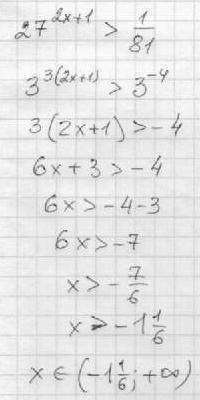 27^{2x+1} > \frac{1}{81}
3^{3(2x+1)} > 3^{-4}
3(2x+1) > -4
6x+3 > -4
6x > -4-3
6x > -7
x > -\frac{7}{6}
x > -1\frac{1}{6}
x ∈ (-1\frac{1}{6}; +∞)